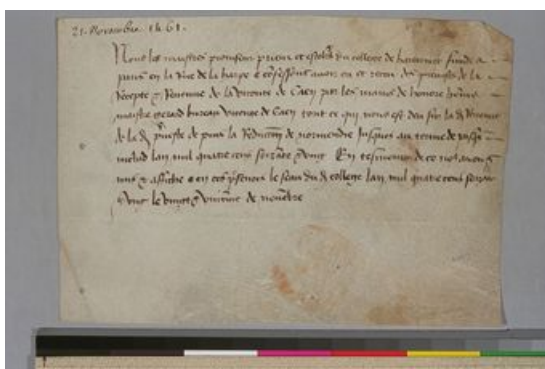 21. Novembre 1461.
Nous les maistres proviseur prieur et escoliers du college de harecourt fonde a
paris en la Rue de la harpe confessons avoir eu et receu des prouffis de la
Recepte & Revenue de la viconte de Caen par les mains de honore homme
maistre gerard bureau viconte de Caen tout ce qui nous est deu sur la d Revenue
de la d viconte depuis la Reduction de normendie Jusques au terme de
michiel lan mil quatre cens soixante & ung En tesmoing de ce nous avons
mis & affiche a ces presentes le seau du d college lan mil quatre cens soixante
& ung le vingt & uniesme de novembre